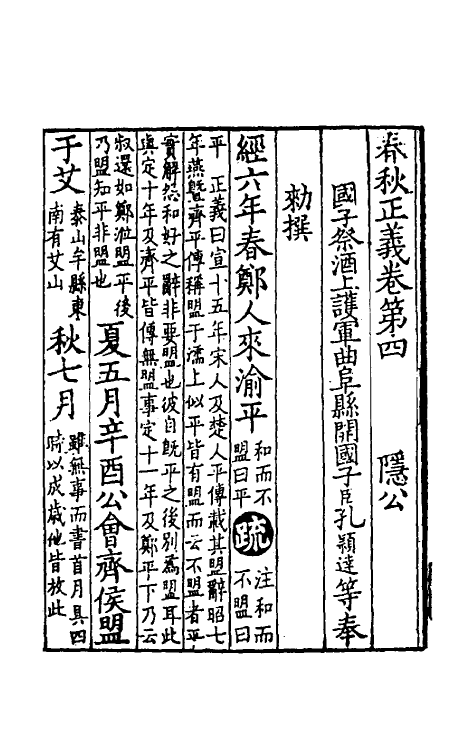 春秋正義卷第四　隱公
國子祭酒上護軍曲阜縣開國子臣孔穎達等奉
勑撰
經六年春鄭人來渝平 和而不
盟曰平 疏 注和而
不盟曰
平 正義曰宣十五年宋人及楚人平傳載其盟辭昭七
年燕曁齊平傳稱盟于濡上似平皆有盟而云不盟者平
實解怨和好之辭非要盟也彼自旣平之後別爲盟耳此
與定十年及齊平皆傳無盟事定十一年及鄭平下乃云
叔還如鄭涖盟平後
乃盟知平非盟也 夏五月辛酉公會齊侯盟
于艾 泰山牟縣東
南有艾山 秋七月 雖無事而書首月具四
時以成歲他皆放此